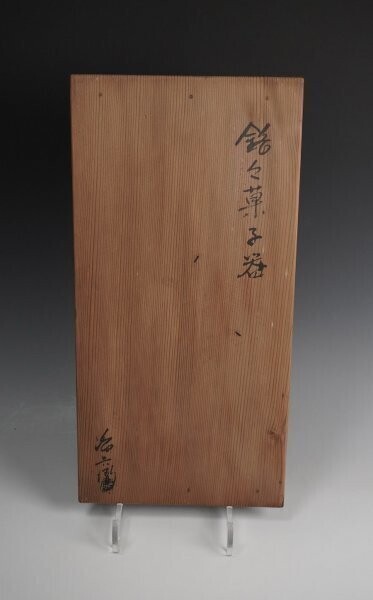 銘々菓子器